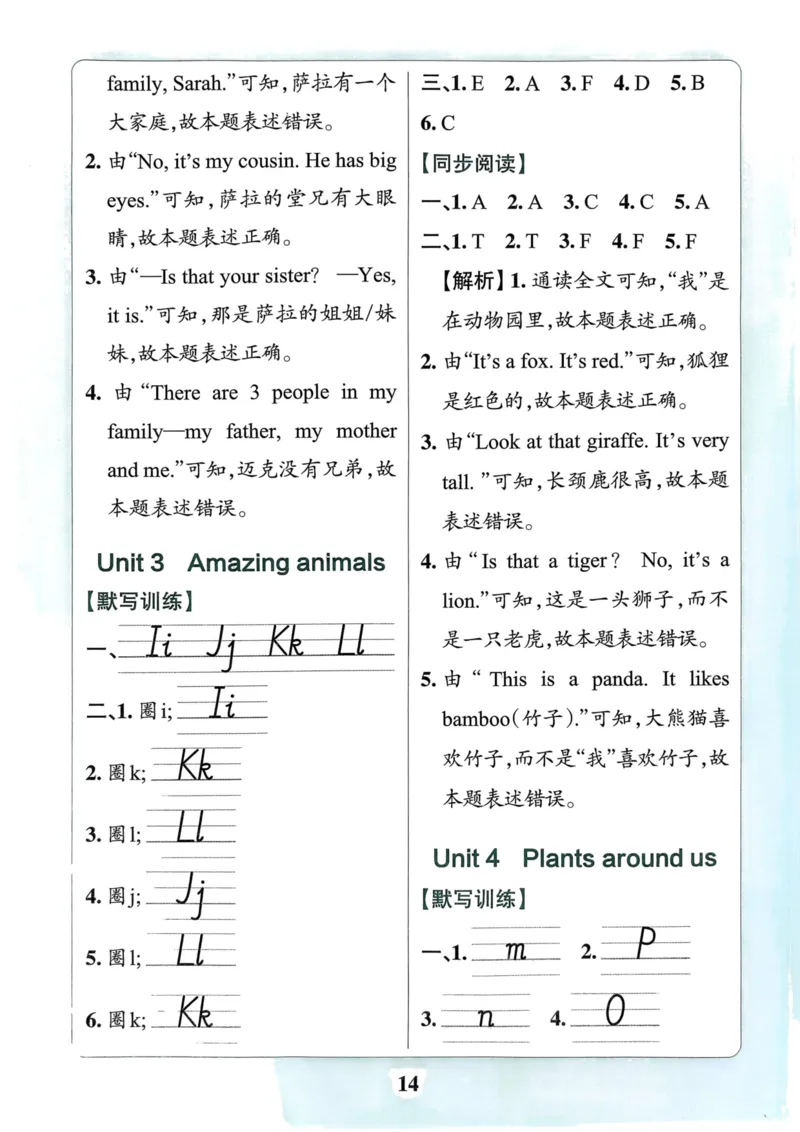 family, Sarah.”可知,萨拉有一个
大家庭,故本题表述错误。
2. 由“No, it’s my cousin. He has big
eyes.”可知,萨拉的堂兄有大眼
睛,故本题表述正确。
3. 由“—Is that your sister? —Yes,
it is.”可知,那是萨拉的姐姐/妹
妹,故本题表述正确。
4. 由 “There are 3 people in my
family—my father, my mother
and me.”可知,迈克没有兄弟,故
本题表述错误。
Unit 3 Amazing animals
【默写训练】
一、Ii Jj Kk Ll
二、1. 圈i; Ii
2. 圈k; Kk
3. 圈l; Ll
4. 圈j; Jj
5. 圈l; Ll
6. 圈k; Kk
三、1. E 2. A 3. F 4. D 5. B
6. C
【同步阅读】
一、1. A 2. A 3. C 4. C 5. A
二、1. T 2. T 3. F 4. F 5. F
【解析】1. 通读全文可知,“我”是
在动物园里,故本题表述正确。
2. 由“It’s a fox. It’s red.”可知,狐狸
是红色的,故本题表述正确。
3. 由“Look at that giraffe. It’s very
tall. ”可知,长颈鹿很高,故本题
表述错误。
4. 由“Is that a tiger? No, it’s a
lion.”可知,这是一头狮子,而不
是一只老虎,故本题表述错误。
5. 由 “ This is a panda. It likes
bamboo(竹子).”可知,大熊猫喜
欢竹子,而不是“我”喜欢竹子,故
本题表述错误。
Unit 4 Plants around us
【默写训练】
一、1. m 2. P
3. n 4. O
14